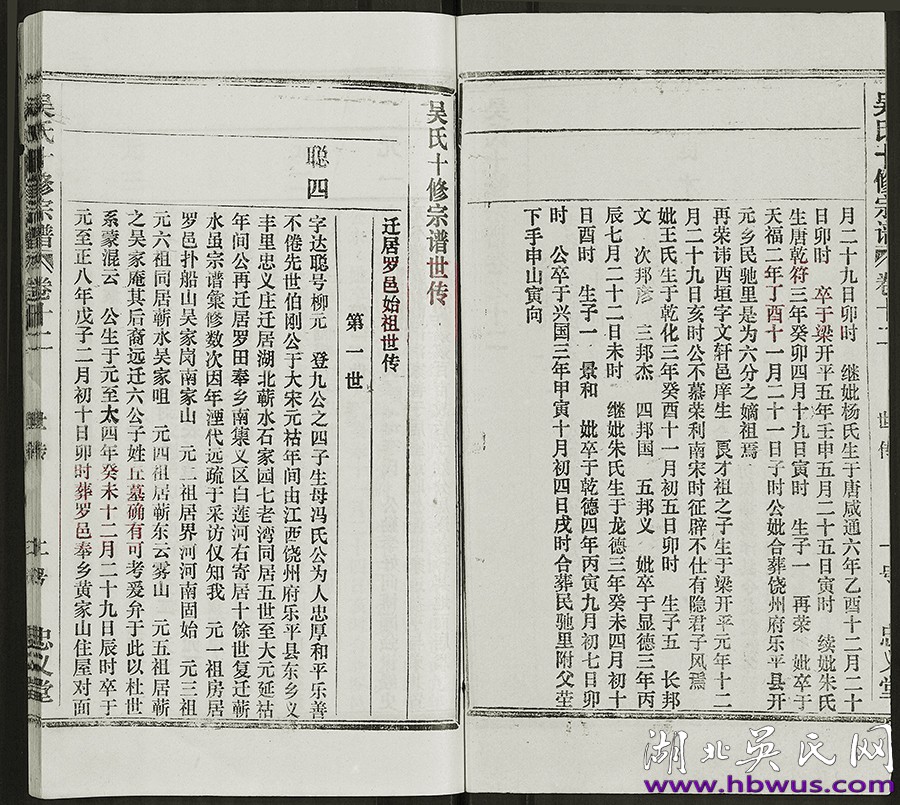 吴氏十修宗谱 卷十二 世传 一号 忠义堂
月二十九日卯时 继妣杨氏生于唐咸通六年乙酉十二月二十
日卯时 卒于梁开平五年壬申五月二十五日寅时 续妣朱氏
生唐乾符三年癸卯四月十九日寅时 生子一 再荣 妣卒于
天福二年丁酉十一月二十一日子时公妣合葬饶州府乐平县开
元乡民驰里是为六分之嫡祖焉
再荣讳西垣字文轩邑庠生 良才祖之子生于梁开平元年十二
月二十九日亥时公不慕荣利南宋时征辟不仕有隐君子风焉
妣王氏生于乾化三年癸酉十一月初五日卯时 生子五 长邦
文 次邦彦 三邦杰 四邦国 五邦义 妣卒于显德三年丙
辰七月二十二日未时 继妣朱氏生于龙德三年癸未四月初十
日酉时 生子一 景和 妣卒于乾德四年丙寅九月初七日卯
时 公卒于兴国三年甲寅十月初四日戌时合葬民驰里附父茔
下手申山寅向
吴氏十修宗谱世传
迁居罗邑始祖世传
第一世
聪四
字达聪号柳元 登九公之四子生母冯氏公为人忠厚和平乐善
不倦先世伯刚公于大宋元祜年间由江西饶州府乐平县东乡义
丰里忠义庄迁居湖北蕲水石家园七老湾同居五世至大元延祜
年间公再迁居罗田奉乡南集义区白莲河右寄居十馀世复迁蕲
水虽宗谱彙修数次因年湮代远疏于采访仅知我 元一祖房居
罗邑扑船山吴家岗南家山 元二祖居界河河南固始 元三祖
元六祖同居蕲水吴家咀 元四祖居蕲东云雾山 元五祖居蕲
之吴家庵其后裔远迁六公子姓丘墓确有可考爰弁于此以杜世
系蒙混云 公生于元至太四年癸未十二月二十九日辰时卒于
元至正八年戊子二月初十日卯时葬罗邑奉乡黄家山住屋对面
吴氏十修宗谱 卷十二 世传 二号 忠义堂
湖北吴氏网
www.hbwus.com